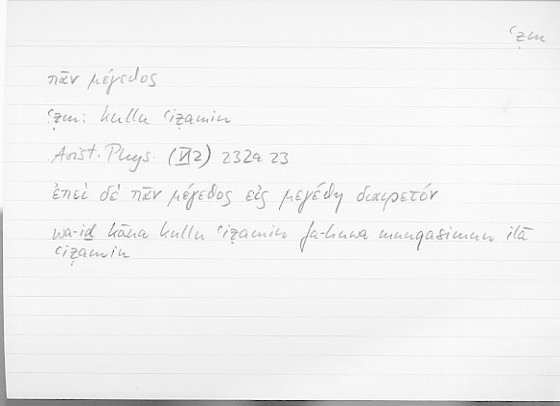 ʿẓm
πᾶν μέγεθος
ʿẓm: kullu ʿiẓamin
Arist. Phys. (VI2) 232a 23
ἐπεὶ δὲ πᾶν μέγεθος εἰς μεγέθη διαιρετόν
wa-iḏ kāna kullu ʿiẓamin fa-huwa munqasimun ilā
ʿiẓamin